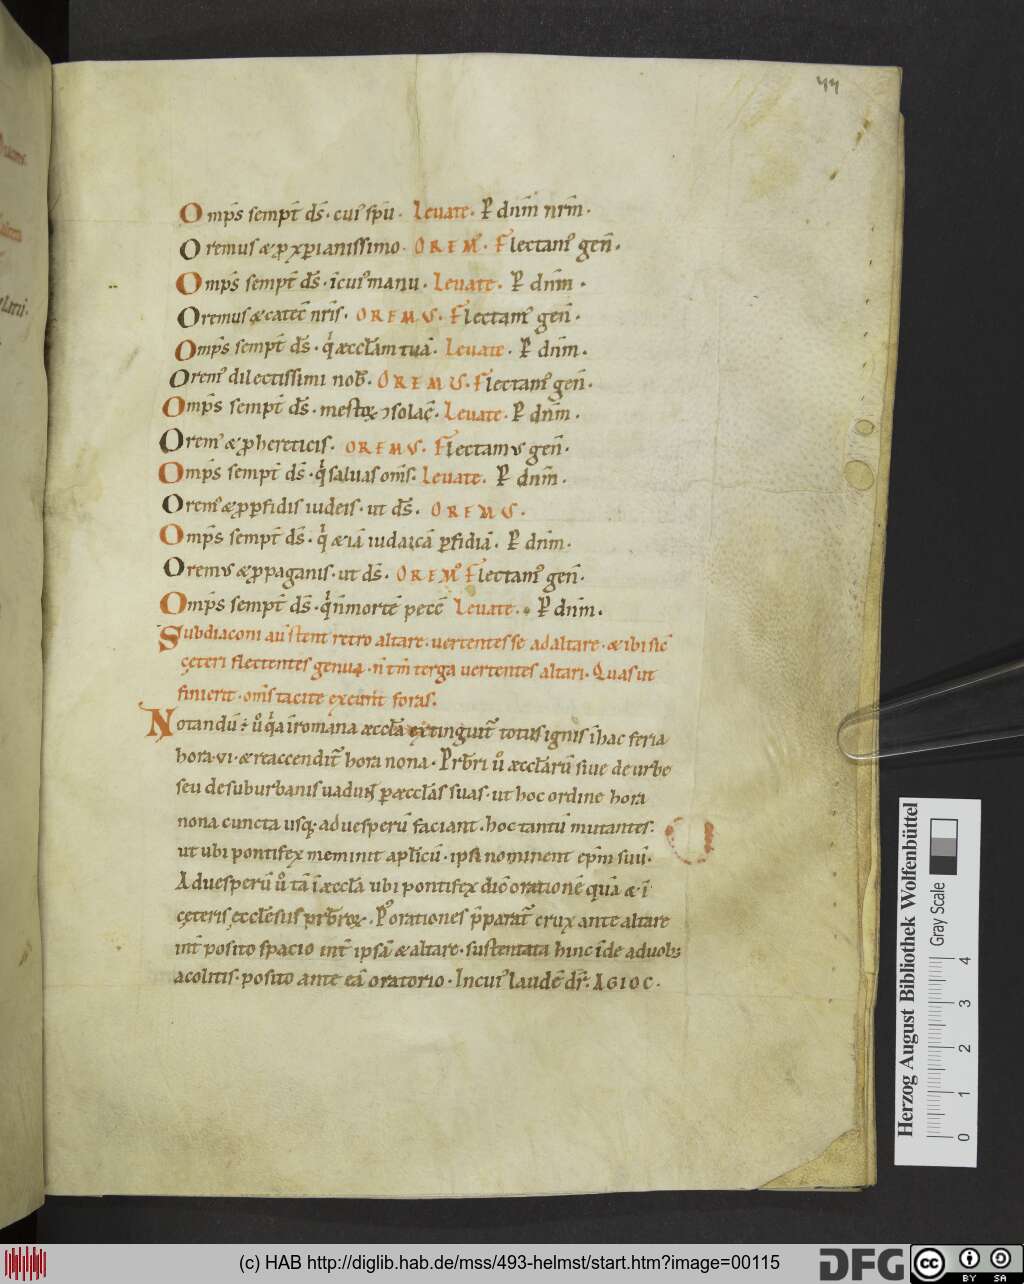 44
Omp̅s sempt̅ ds̅. cui᾽ sp̅u. Leuate. P̲ dn̅m nr̅m.
Oremus & ꝓ xp̅ianissimo. OREM᾽. Flectam᾽ gen̅.
Omp̅s sempt̅ ds̅. ı̅cui᾽ manu. Leuate. P̲ dn̅m.
Oremus & catec̅ nr̅is. OREMUS. Flectam᾽ gen̅.
Omp̅s sempt̅ ds̅. qͥ æccl̅am tuā. Leuate. P̲ dn̅m.
Orem᾽ dilectissimi nob̅. OREMUS. Flectam᾽ gen̅.
Omp̅s sempt̅ ds̅. mestoꝝ ɔsolac̅. Leuate. P̲ dn̅m.
Orem᾽ & ꝓ hereticis. OREMUS. Flectamus gen̅.
Omp̅s sempt̅ ds̅. qͥ saluas om̅s. Leuate. P̲ dn̅m.
Orem᾽ & ꝓ ꝑfidis iudeis. ut ds̅. OREMUS.
Omp̅s sempt̅ ds̅. qͥ &iā iudaicā ꝑfidiā. P̲ dn̅m.
Oremus & ꝓ paganis. ut ds̅. OREM᾽ Flectam᾽ gen̅.
Omp̅s sempt̅ ds̅. qͥ n̅ morte̅ pecc̅ Leuate. P̲ dn̅m.
Subdiaconi au᾽ stent retro altare. uertentes se ad altare. & ibi sic̅
çeteri flectentes genua. n̅ tm̅ terga uertentes altari. Quas ut
finierit. om̅s tacite exeunt foras.
Notandū ÷ uͦ qͥa ı̅ romana æccl̅a extinguit᾽ totus ignis ı̅ hac feria
hora. vi. & reaccendit᾽ hora nona. Prb̅ri uͦ æccl̅arū siue de urbe
seu de suburbanis uadunt ꝑ æccl̅as suas. ut hoc ordine hora
nona cuncta usq; ad uesperū faciant. hoc tantū mutantes.
ut ubi pontifex meminit apl̅icū. ipsi nominent ep̅m suū.
Ad uesperū uͦ tā ı̅ æccl̅a ubi pontifex dic̅ oratione̅ quā & ı̅
çeteris ęccl̅esiis prb̅roꝝ. P᾽ orationes p̅parat᾽ crux ante altare
int̅ posito spacio int̅ ipsā & altare. sustentata hinc ı̅de a duob;
acolitis. posito ante eā oratorio. In cui᾽ laude̅ dr̅. AGIOC.
Herzog August Bibliothek Wolfenbüttel
Gray Scale
0 1 2 3 4
(c) HAB http://diglib.hab.de/mss/493-helmst/start.htm?image=00115
DFG
cc
BY SA